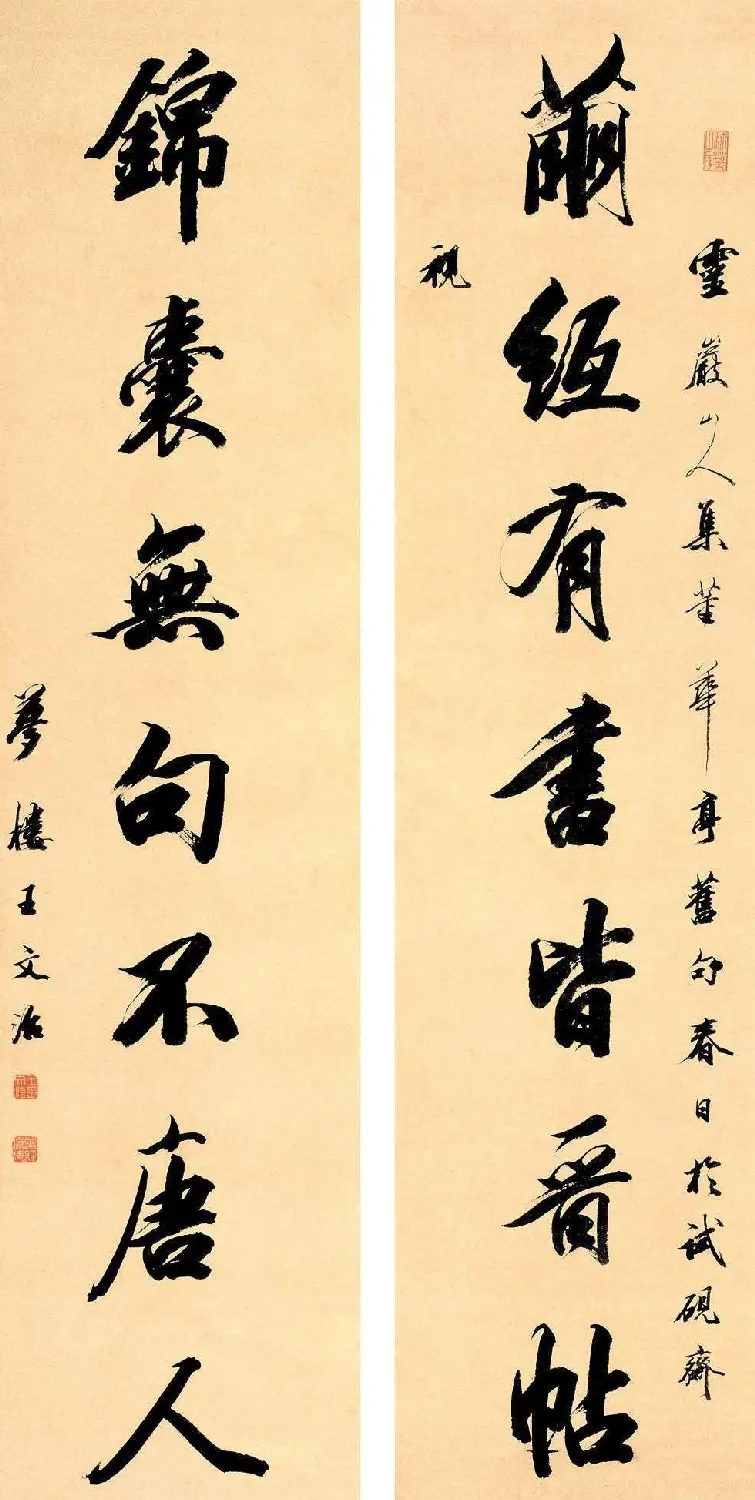 繭紙有書皆晉帖
靈巖山人集董華亭舊句春日於試硯齋
視
錦囊無句不唐人
夢樓王文治